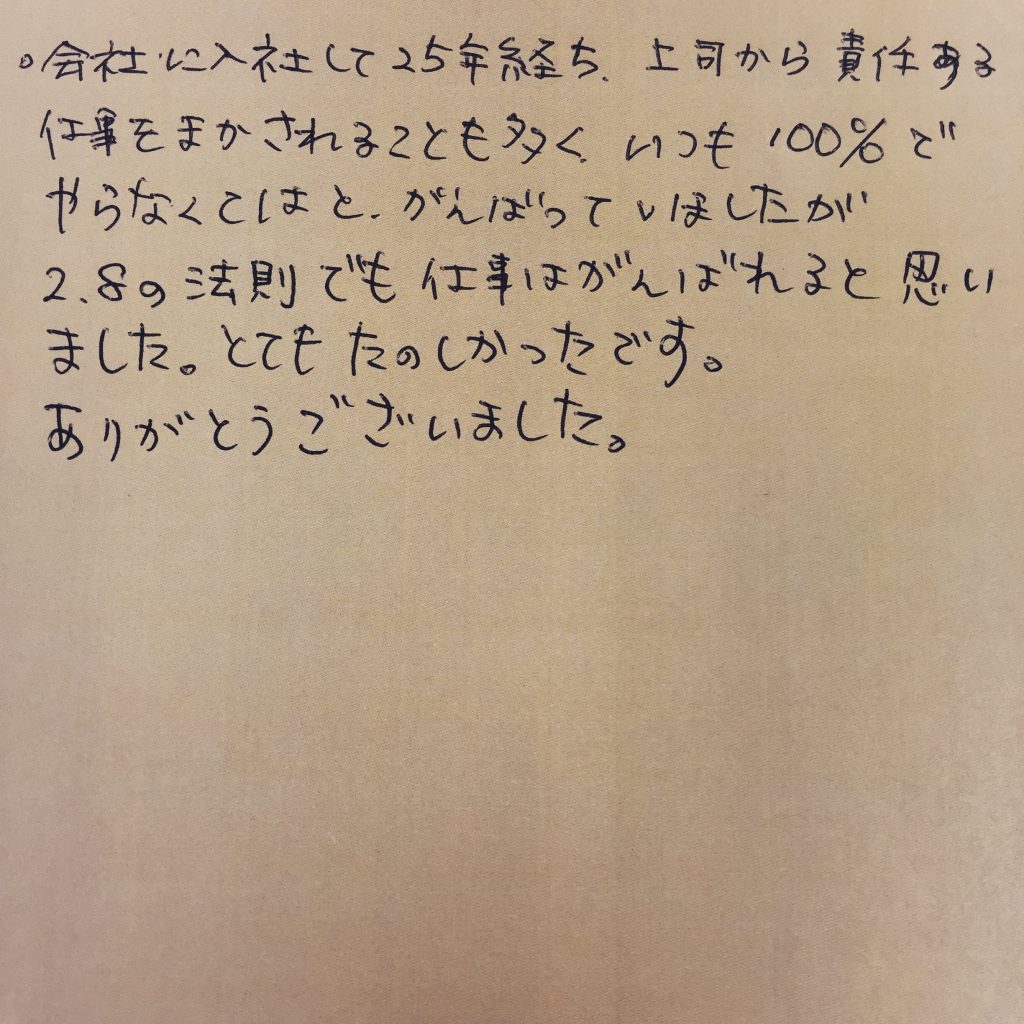 。会社に入社して25年経ち、上司から責任ある
仕事をまかされることも多く、いつも100%で
やらなくてはと、がんばっていましたが
2.8の法則でも仕事はがんばれると思い
ました。とてもたのしかったです。
ありがとうございました。